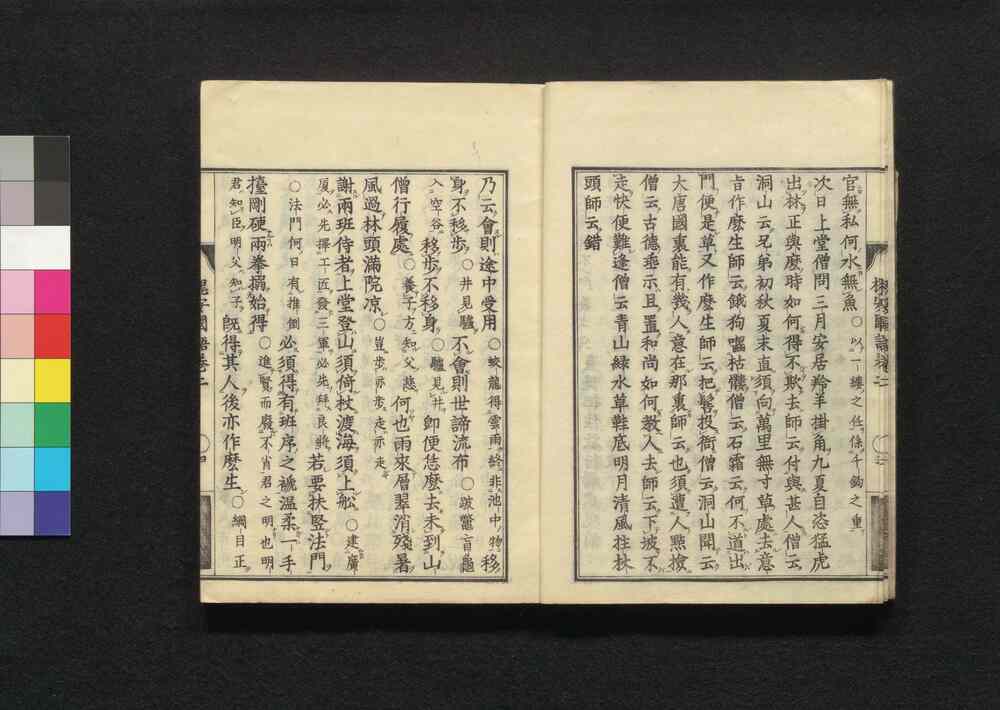 官無私何水無魚 ○以一縷之任係千鈞之重
次日上堂僧問三月安居羚羊掛角九夏自恣猛虎
出林正與麼時如何得不欺去師云付與甚人僧云
洞山云兄弟初秋夏末直須向萬里無寸草處去意
旨作麼生師云餓狗囓枯髏僧云石霜云何不道出
門便是草又作麼生師云把髻投衙僧云洞山聞云
大唐國裏能有幾人意在那裏師云也須遭人點檢
僧云古德垂示且置和尚如何教入去師云下坡不
走快便難逢僧云青山綠水草鞋底明月清風拄杖
頭師云錯
乃云會則途中受用 ○蛟龍得雲雨終非池中物 移
身不移步 ○井見驢 不會則世諦流布 ○跛鱉盲龜
入空谷 移步不移身 ○驢見井 卽便恁麼去未到山
僧行履處 ○養子方知父慈 何也雨來層翠消殘暑
風過林頭滿院凉 ○豈步亦步走亦走
謝兩班侍者上堂登山須倚杖渡海須上舩 ○建廣
厦必先擇工匠發三軍必先拜良將 若要扶竪法門
○法門何日有推倒 必須得有班序之褫温柔一手
擡剛硬兩拳搦始得 ○進賢而廢不肖君之明也明
君知臣明父知子 旣得其人後亦作麼生 ○綱目正